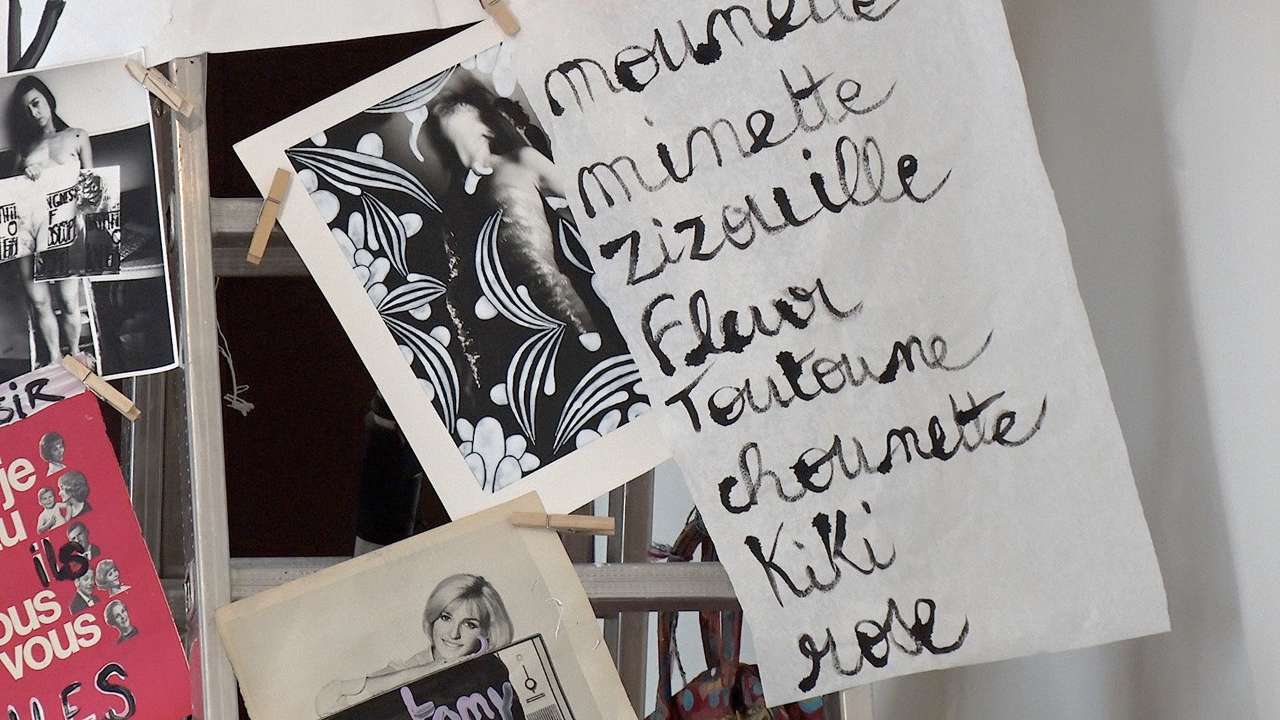 mounette
minette
zizouille
Fleur
Toutoune
chounette
Kiki
rose
je
ils
vous